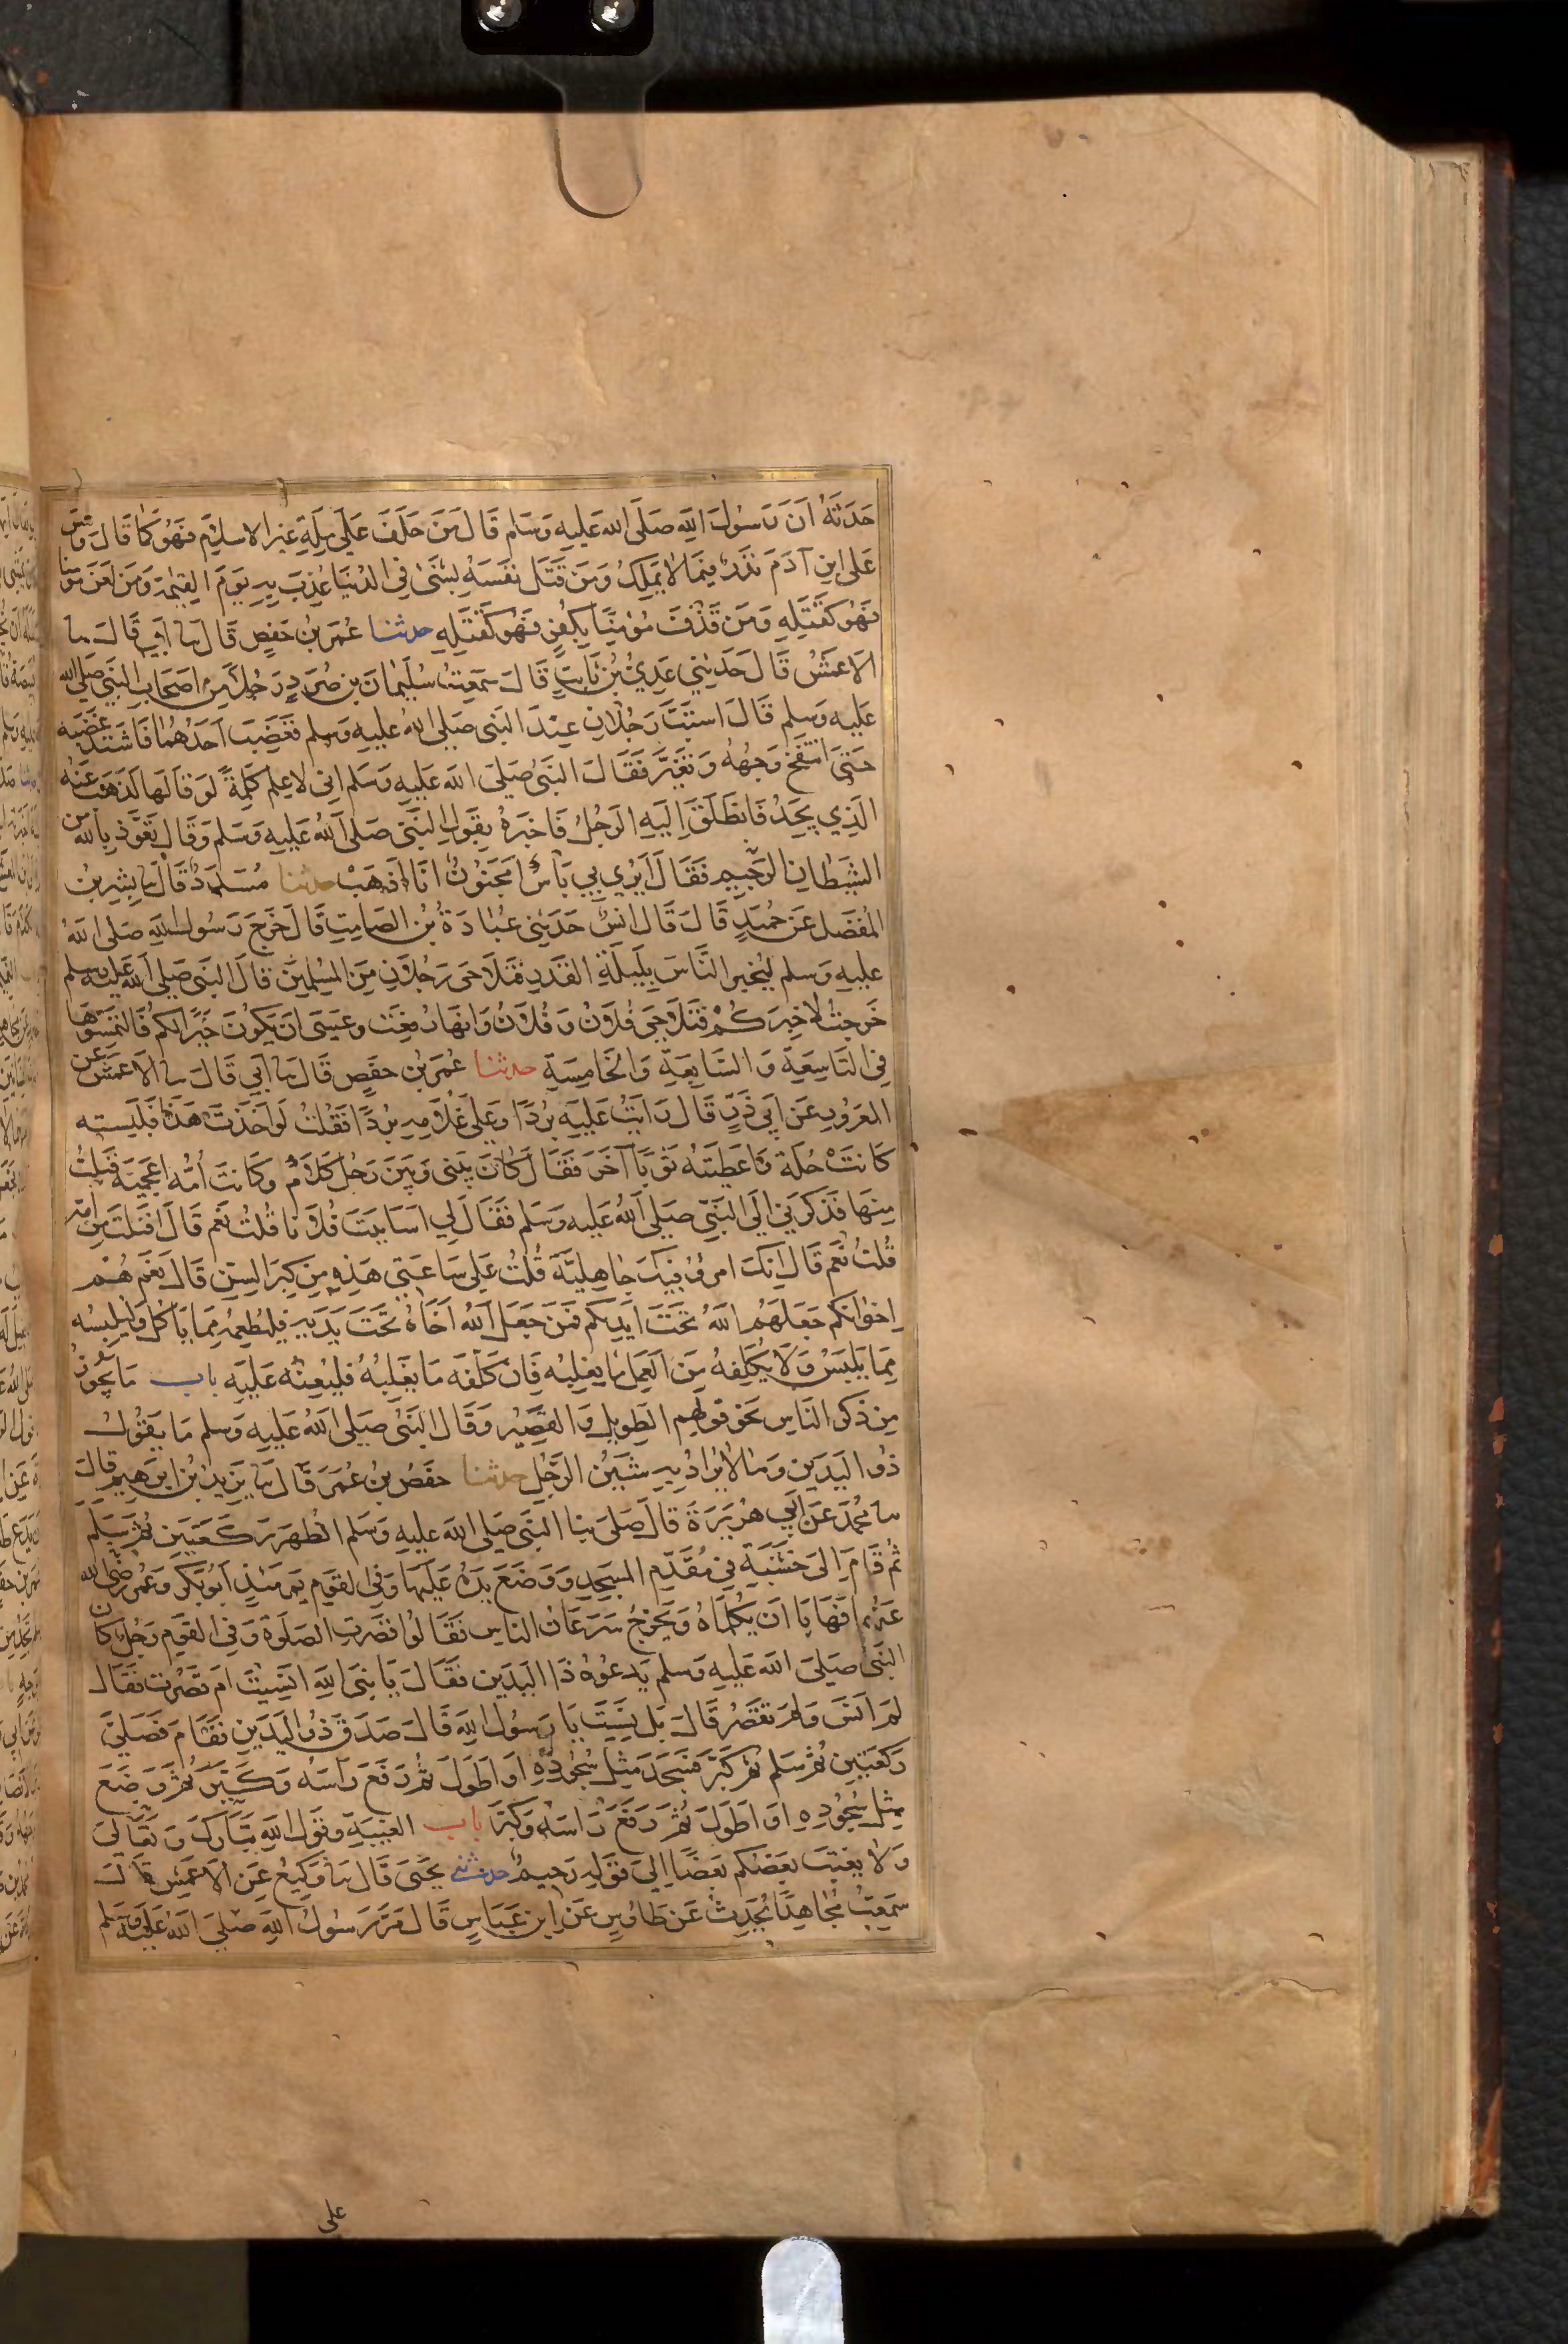 حَدَثَهُ اَنَ رَسُولَ اللهِ صَلَى الله عَلَيهِ وَسَلم قَالَ مَن حَلَفَ عَلَى مِلَةِ غَيرِ الاسلامِ فَهُوَ كَمَا قَالَ وَلَيسَ
عَلى ابنِ آدَمَ نَذرٌ فيمَا لايَملِكُ وَمَن قَتَلَ نَفسَهُ بشَئ فِى الدُنيَا عُذِبَ بِهِ يَومَ القِيمَة وَمَن لَعَنَ مُؤمنا
فهُوَ كَقَتلِهِ وَمَن قَذَفَ مُؤمِنًا بِكُفرٍ فَهُوَ كَقَتلِهِ حدثنا عُمَر بنُ حَفصٍ قَالَ نا اَبى قَالَ نا
الاَعمَشُ قَالَ حَدَثَنِي عَدِيُ بنُ ثَابِتٍ قَالَ سَمِعتُ سُلَيمَانَ بن صُرَدٍ رَجُلاً مِن اَصحَابِ النَبى صَلى الله
عَلَيهِ وَسَلم قَالَ استَبَّ رَجُلانِ عِندَ النَبى صَلى اللهُ عَليهِ وَسَلم فَغَضِبَ اَحَدُهُمَا فَاشتَدَ غَضَبُه
حَتى انتَفَخَ وَجهُهُ وَتَغَيَّر فَقَالَ النَبى صَلى الله عَلَيهِ وَسَلم اِنى لاعلم كَلِمَةً لَو قَالَهَا لَذَهَبَ عَنهُ
الَذِي يَجِدُ فَانطَلَقَ اِلَيهِ الرَجُلُ فَاخبَرَهُ بِقَولِ النَبى صَلى اللهُ عَلَيهِ وَسَلم وَقَالَ تَعَوَّذ بِاللهِ مِن
الشَيطَانِ الرَجيمِ فَقَالَ اَتُرى بِي بَأسٌ اَمَجنُونٌ اَنَا اذهَب حدثنا مُسَدَدٌ قَالَ نا بِشرُ بنُ
المُفَضَل عَن حُمَيدٍ قَالَ قَالَ انَسٌ حَدَثَنِى عُبَادَةُ بنُ الصَامِتِ قَالَ خَرَجَ رَسُولُ اللهِ صَلى اللهُ
عَليهِ وَسَلم لِيُخبِرَ النَاسَ بِلَيلَةِ القَدرِ فَتَلَاحَى رَجُلانِ مِنَ المُسلِمِينَ قالَ النَبى صَلى الله عَليه وسلم
خَرَجتُ لاخبِرَكُم فَتَلَاحَى فُلَانٌ وَفُلَانٌ وَاِنهَا رُفِعَت وعَسَى اَن يَكُونَ خَيرًا لَكُم فَالتَمِسُوهَا
فِى التَاسِعَةِ وَالسَابِعَةِ وَالخَامِسَةِ حدثنا عُمَر بن حفصٍ قَالَ نا اَبى قَالَ نا الاَعمَش عَن
المعرُورِ عَن اَبِى ذَرٍ قَالَ رَايتُ عَلَيهِ بُردًا وَعَلى غُلَامِهِ بُردًا فَقُلتُ لَو اَخَذتَ هَذَا فَلَبِسته
كَانَت حُلَة وَاَعطَيتَهُ ثَوبًا آخَر فَقَالَ كَانَ بَينى وَبَينَ رَجُل كَلَامٌ وَكَانَت اُمُه اَعجَميَة فَنِلتُ
مِنهَا فَذَكَرَنى اِلَى النَبِيّ صَلى اللهُ عَلَيهِ وَسَلم فَقَالَ لِي اَسَابَبتَ فُلَانا قُلتُ نَعَم قَالَ اَفَنِلتَ مِن اُمِهِ
قُلتُ نَعَم قَالَ اِنَكَ امرؤٌ فيكَ جَاهِليَّة قُلتُ عَلى سَاعَتى هَذِهِ مِن كِبَرِ السِن قَالَ نَعَم هُم
اِخوَانُكم جَعَلَهُم اللهُ تَحتَ اَيدِيكُم فَمَن جَعَلَ اللهُ اَخَاهُ تَحتَ يَدَيهِ فليُطعِمهُ مِمَا يَأكُلُ وَليُلبِسهُ
مِمَا يَلبَسُ وَلَا يُكَلِفهُ مِنَ العَمَلِ مَا يَغلِبُه فَاِن كَلَّفَه مَا يَغلِبُهُ فَليُعِنهُ عَلَيهِ باب مَا يَجُوزُ
مِن ذِكرِ النَاسِ نَحو قَولِهِم الطَويلِ وَالقَصِيرِ وَقَالَ النَبىُ صَلى اللهُ عَلَيهِ وَسلم مَا يَقُولُ
ذُو اليَدَينِ وَمَا لايُرَادُ بِهِ شَينُ الرَجُلِ حدثنا حفصُ بنُ عُمَرَ قَالَ نا يَزِيدُ بنُ اِبرَهِيم قَالَ
نا مُحَمدٌ عَن اَبِي هُرَيرَةَ قَالَ صَلى بِنا النَبى صَلى الله عَليهِ وَسَلم الظهرَ رَكعَتَينِ ثُمَ سَلم
ثُم قَامَ اِلى خَشَبَةٍ فى مُقَدَمِ المَسجِدِ وَوَضَعَ يَدَهُ عَلَيهَا وَفى القَومِ يَومَئذٍ اَبُوبَكرٍ وَعُمَر رَضى الله
عَنهُما فَهَابَا اَن يُكَلِّمَاهُ وَيَخرُجُ سَرَعَانُ الناس فَقَالُوا قصرت الصَلوة وَفى القَومِ رَجُل كَانَ
النَبى صَلى الله عَلَيهِ وَسلم يَدعُوهُ ذَا اليَدَين فَقَالَ يَا نَبىَ اللهِ اَنَسِيتَ اَم قَصُرت فَقَالَ
لَم اَنسَ وَلَم تَقصُر قَالَ بَل نَسِيتَ يَا رَسُولَ اللهِ قَالَ صَدَقَ ذُو اليَدَين فَقَامَ فَصَلىّ
رَكعَتَينِ ثُم سَلم ثم كَبّرَ فَسَجَدَ مِثلَ سُجُودِهِ اَو اَطوَلَ ثُم رَفَعَ رَاسَه وَكَبَّرَ ثُم وَضَعَ
مِثلَ سُجُودِهِ اَو اَطوَلَ ثُم رَفَعَ رَاسَه وَكَبَّرَ باب الغِيبَةِ وَقَولِ اللهِ تَبَارَكَ وَتَعَالى
وَلا يَغتَب بَعضُكم بَعضًا اِلى قَولِهِ رَحِيمٌ حدثنى يَحيى قَالَ نا وَكِيعٌ عَنِ الاَعمَشِ قَالَ
سَمِعتُ مُجَاهِدًا يُحَدِثُ عَن طَاوُسٍ عَن ابنِ عَبَاسٍ قَالَ مَرَّ رَسُولُ اللهِ صَلى اللهُ عَلَيهِ وَسَلم
على